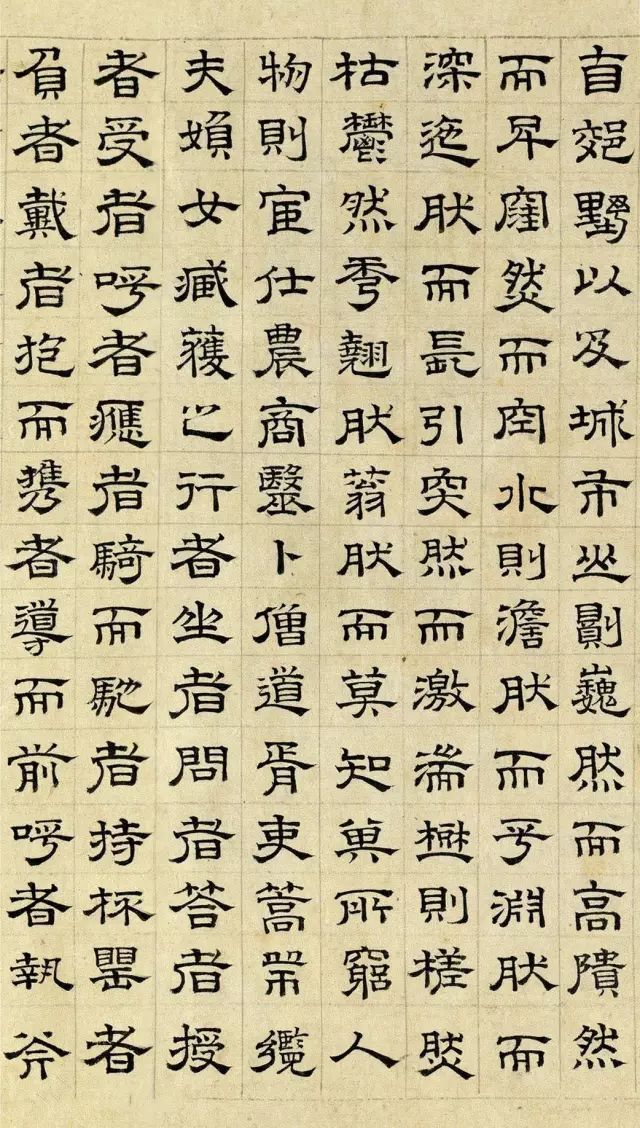 自郊野以及城市山則巍然而高隤然
而卑窪然而空水則澹然而平淵然而
深迤然而長引突然而激湍樹則槎然
枯鬱然秀翹然蓊然而莫知其所窮人
物則官仕農商醫卜僧道胥吏篙師纜
夫婦女臧獲之行者坐者問者答者授
者受者呼者應者騎而馳者持杯罌者
負者戴者抱而攜者導而前呼者執斧